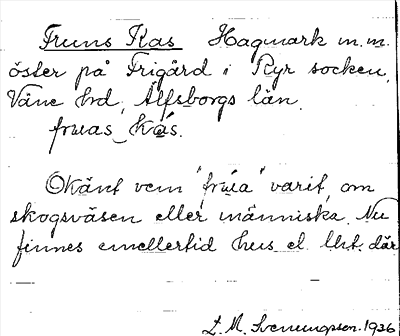 Fruns Kas Hagmark m.m.
öster på Frigård i Ryr socken,
Väne hrd, Älfsborgs län.
fruas kás.
Okänt vem "frúa" varit, om
skogsväsen eller människa. Nu
finnes emellertid hus el. lht. där
L. M. Svenungsson. 1936